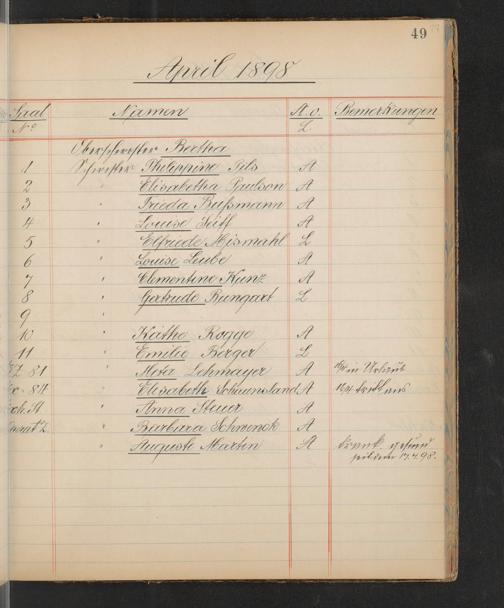 49
April 1898
Saal No Namen A. o. L. Bemerkungen
Oberschwester Bertha
1 Schwester Philippine Pils A
2 " Elisabetha Paulson A
3 " Frieda Bußmann A
4 " Louise Seitf A
5 " Elfriede Mismahl L
6 " Louise Leube A
7 " Clementine Kunz A
8 " Gertrude Bungart L
9 "
10 " Käthe Rogge A
11 " Emilie Berger L
81 " Lehmayer A in Urlaub
84 " Elisabeth Schaunsland A tritt aus
" Anna Steuer A
" Barbara Schnenck A
" Auguste Marten A krank
seit dem 17.4.98.